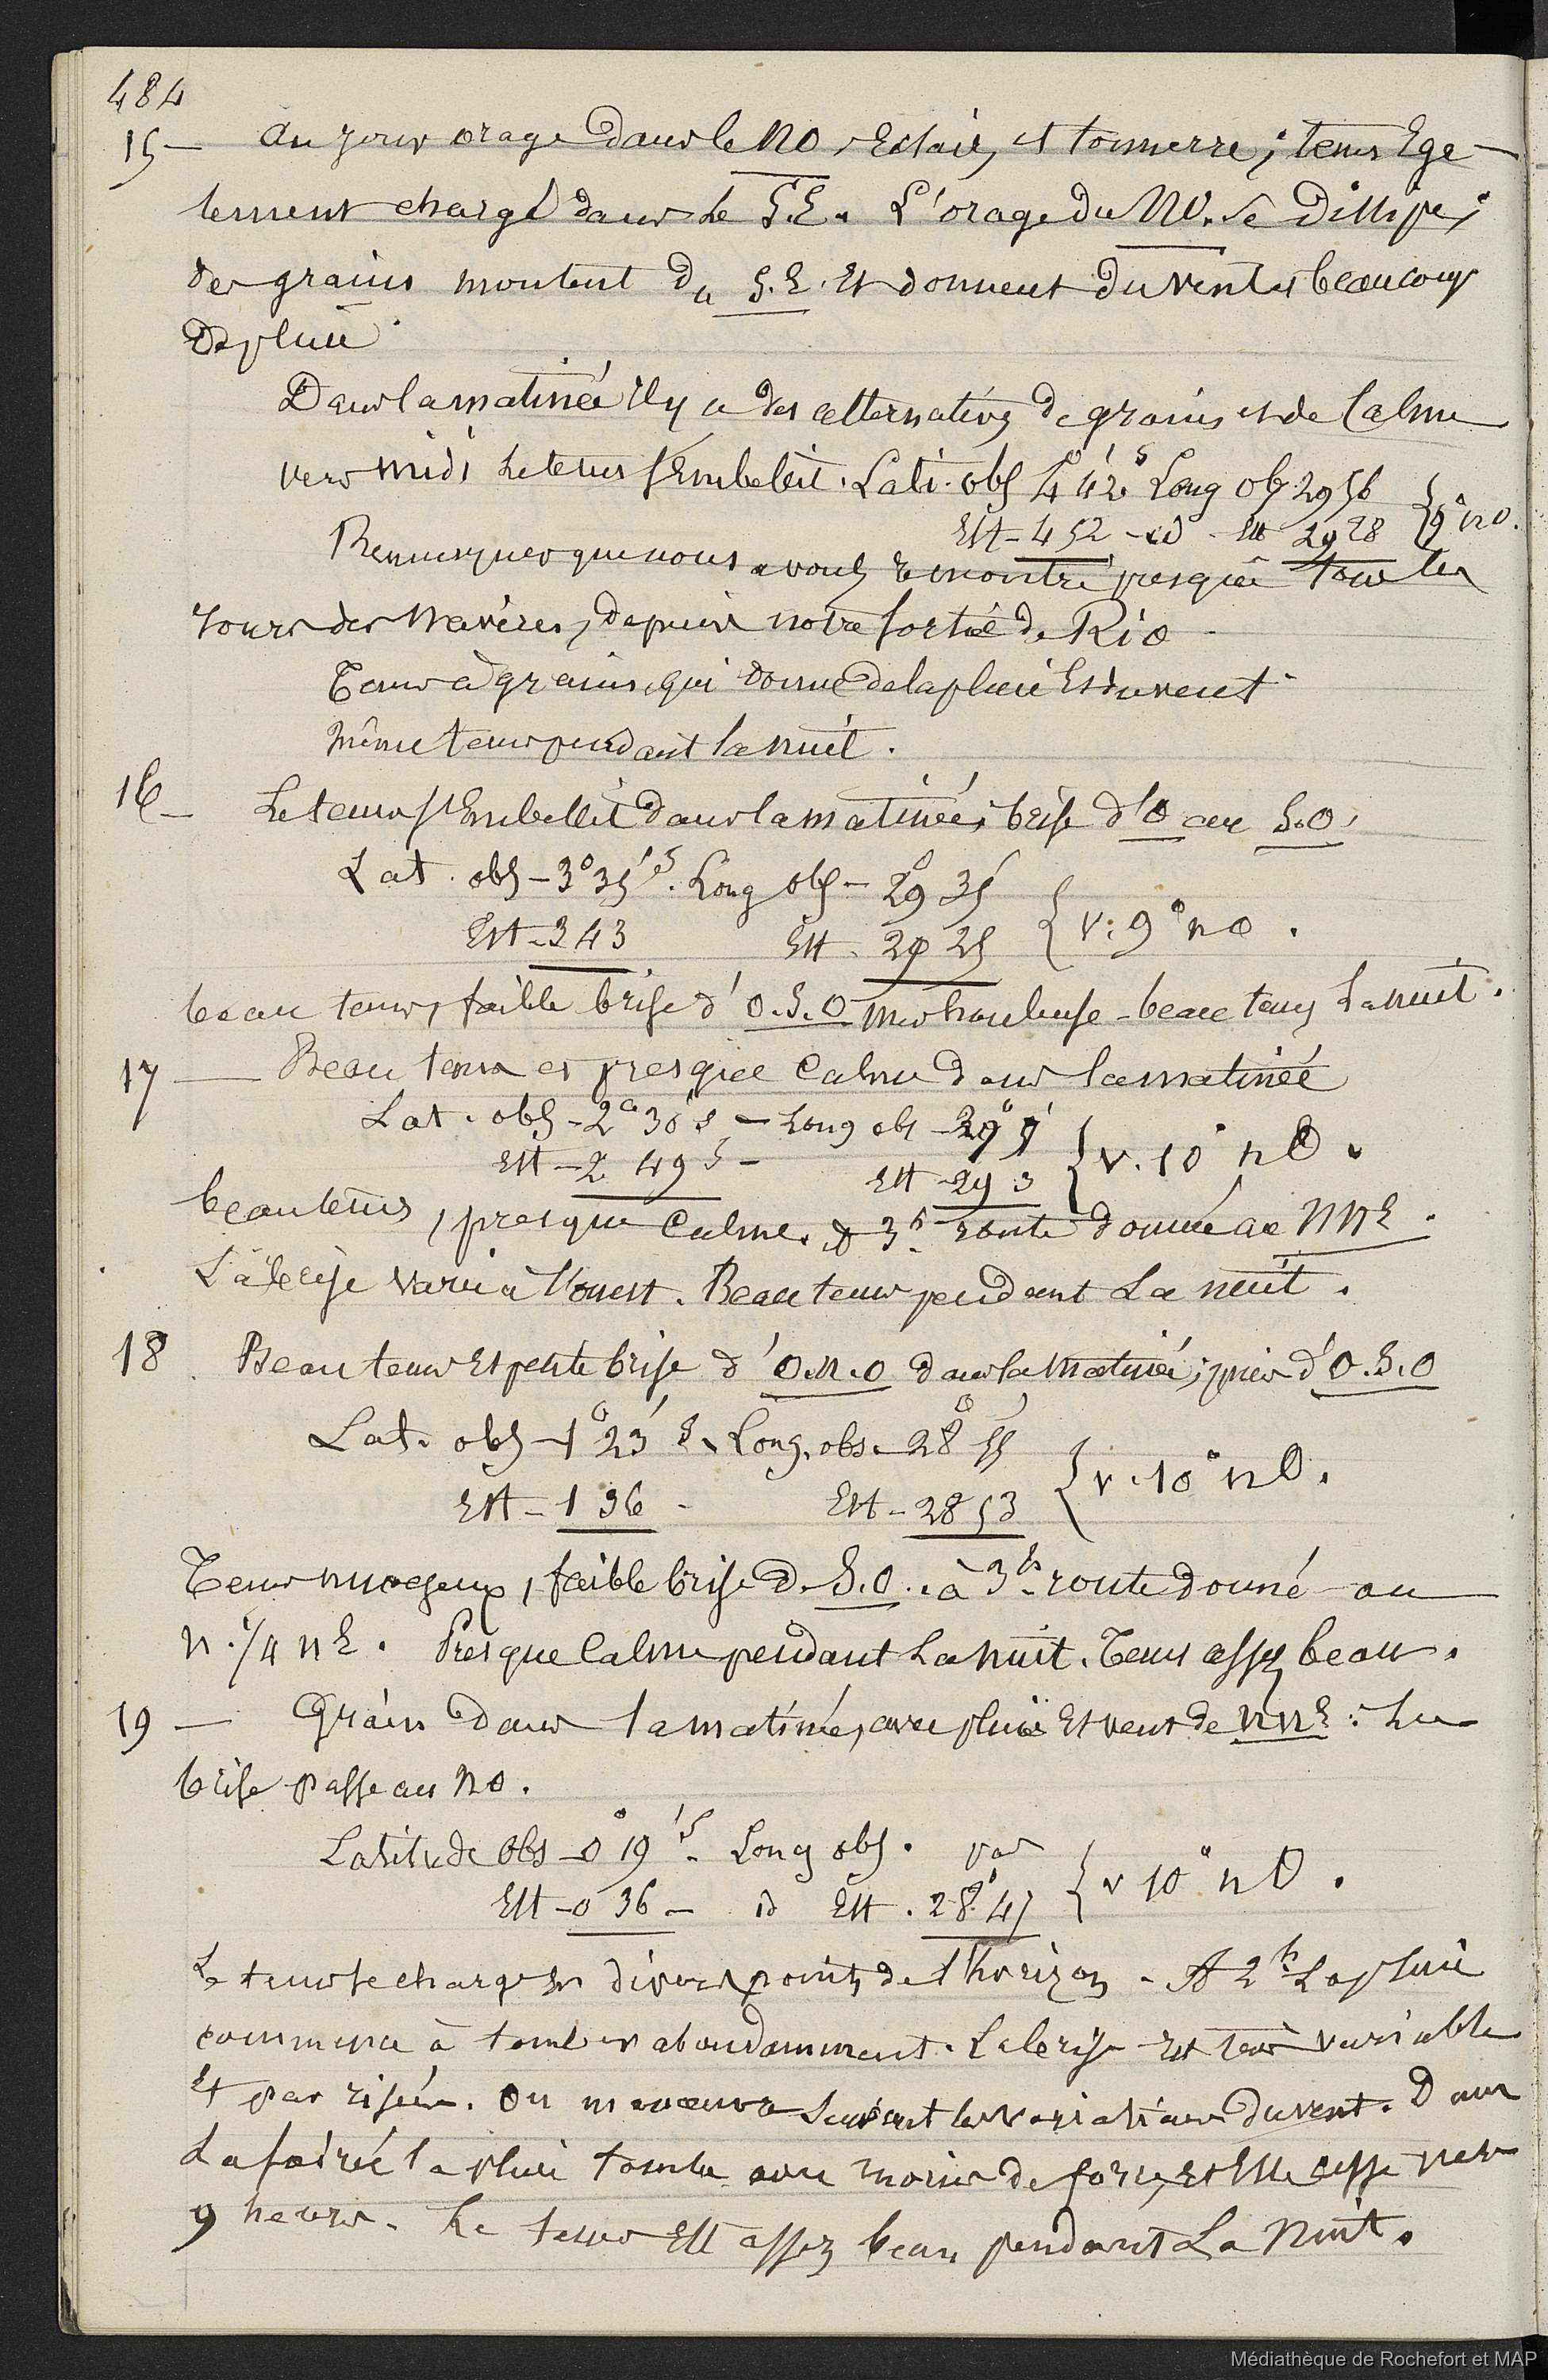 484
15 — au jour orage dans le NO, Eclairs et tonnerre ; tems Ega-
lement chargé dans le S.E. L'orage du NO. se dissipe ;
des grains montent du S.E. Et donnent du vent et beaucoup
De pluie.
Dans la matinée il y a des alternatives de grains et de Calme
vers midi le tems s'Embellit. Lati. obs 4° 42' S Long obs 29 56 } 9° nO.
Est - 4 52 - id - Est 29 28
Remarquer que nous avons remontré presque tous les
jours des Navires, depuis notre sortie de Rio
Tems à grains, qui donne de la pluie Et du vent
même tems pendant la nuit.
16 — Le tems s'Embellit dans la matinée ; brise d'O au S.O.
Lat. obs - 3° 35' S. Long obs - 29° 35' } v. 9° nO.
Est - 3 43 Est. 29 25
beau tems, faible brise d'O.S.O mer houleuse - beau tems La nuit.
17 — Beau tems et presque Calme dans la matinée
Lat. obs - 2° 30' S - Long obs - 29° 5' } v. 10° nO.
Est - 2 49 S - Est - 29 3
beau tems, presque Calme. à 3h route donnée au NNE.
La brise varie à l'ouest. Beau tems pendant La nuit.
18 Beau tems Et petite brise d'O.N.O dans la Matinée ; puis d'O.S.O
Lat. obs - 1° 23' S. Long. obs. 28° 55' } v. 10° nO.
Est - 1 36 - Est - 28 53
Tems nuageux, faible brise De S.O. à 3h route donné au
N. 1/4 NE. Presque Calme pendant La nuit. Tems assez beau.
19 — Grains Dans la matinée, avec pluie Et vent de NNE : La
brise passe au NO.
Latitude obs - 0° 19' S. Long obs. pas } v 10° nO.
Est - 0 36 - id Est. 28° 47
Le tems se charge En divers points de l'horizon - A 2h La pluie
commence à tomber abondamment. La brise Est très variable
Et par risées. On manœuvre Suivant les variations du vent. Dans
La soirée la pluie tombe avec moins de force, et Elle cesse vers
9 heures. Le tems Est assez beau pendant La Nuit.
Médiathèque de Rochefort et MAP